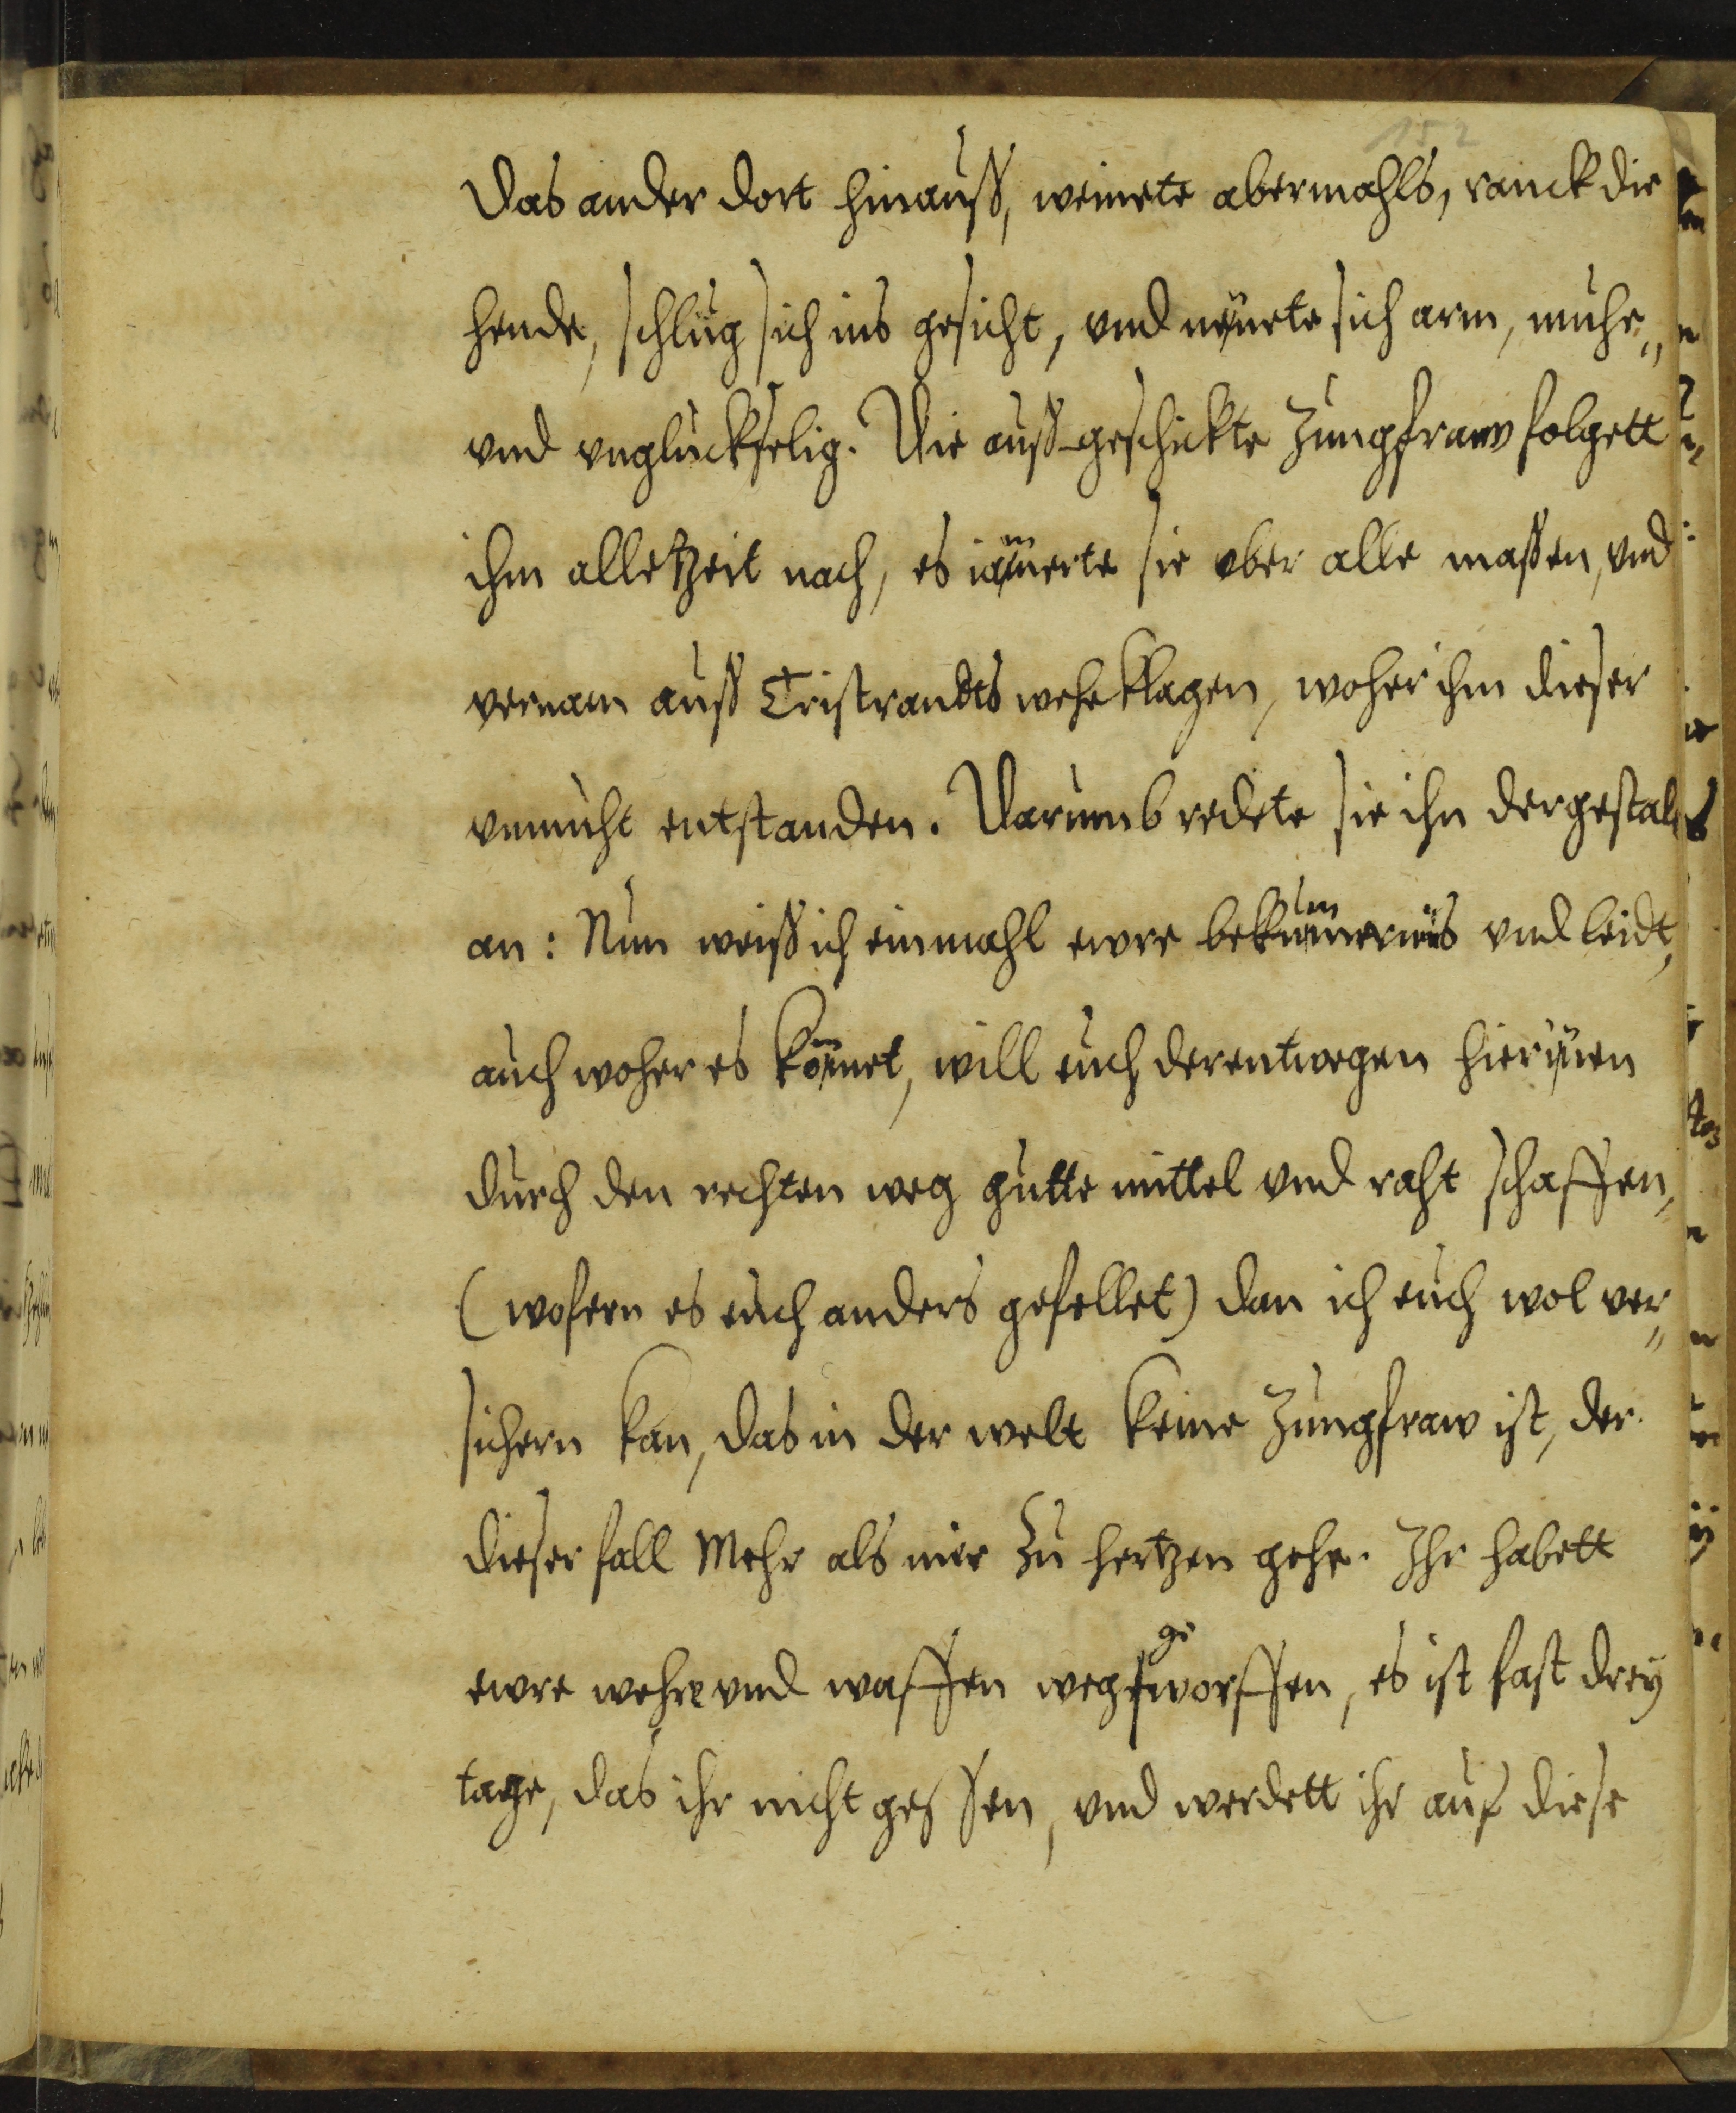 152
das ander dort hinauß, weinete abermahls, ranck die
hende, schlug sich ins gesicht, und nennete sich arm, muhe„
und unglückselig. Die auß-geschickte Jungfraw folgett
ihm alletzeit nach, es iammerte sie vber alle maßen, und
vernam auß Tristrandts wehe klagen, woher ihm dieser
unmuht entstanden. Darumb redete sie ihn dergestal
an: Nun weiß ich einmahl ewre bekummernüs und leidt,
auch woher es kommet, will euch derentwegen hierinnen
durch den rechten weg gutte mittel und raht schaffen,
(wofern es euch anders gefellet) dan ich euch wol ver„
sichern kan, das in der welt keine Jungfraw ist, der
dieser fall Mehr als mir zu hertzen gehe. Ihr habett
ewre wehre und waffen weggeworffen, es ist fast drey
tage, das ihr nicht gessen, und werdett ihr auf diese